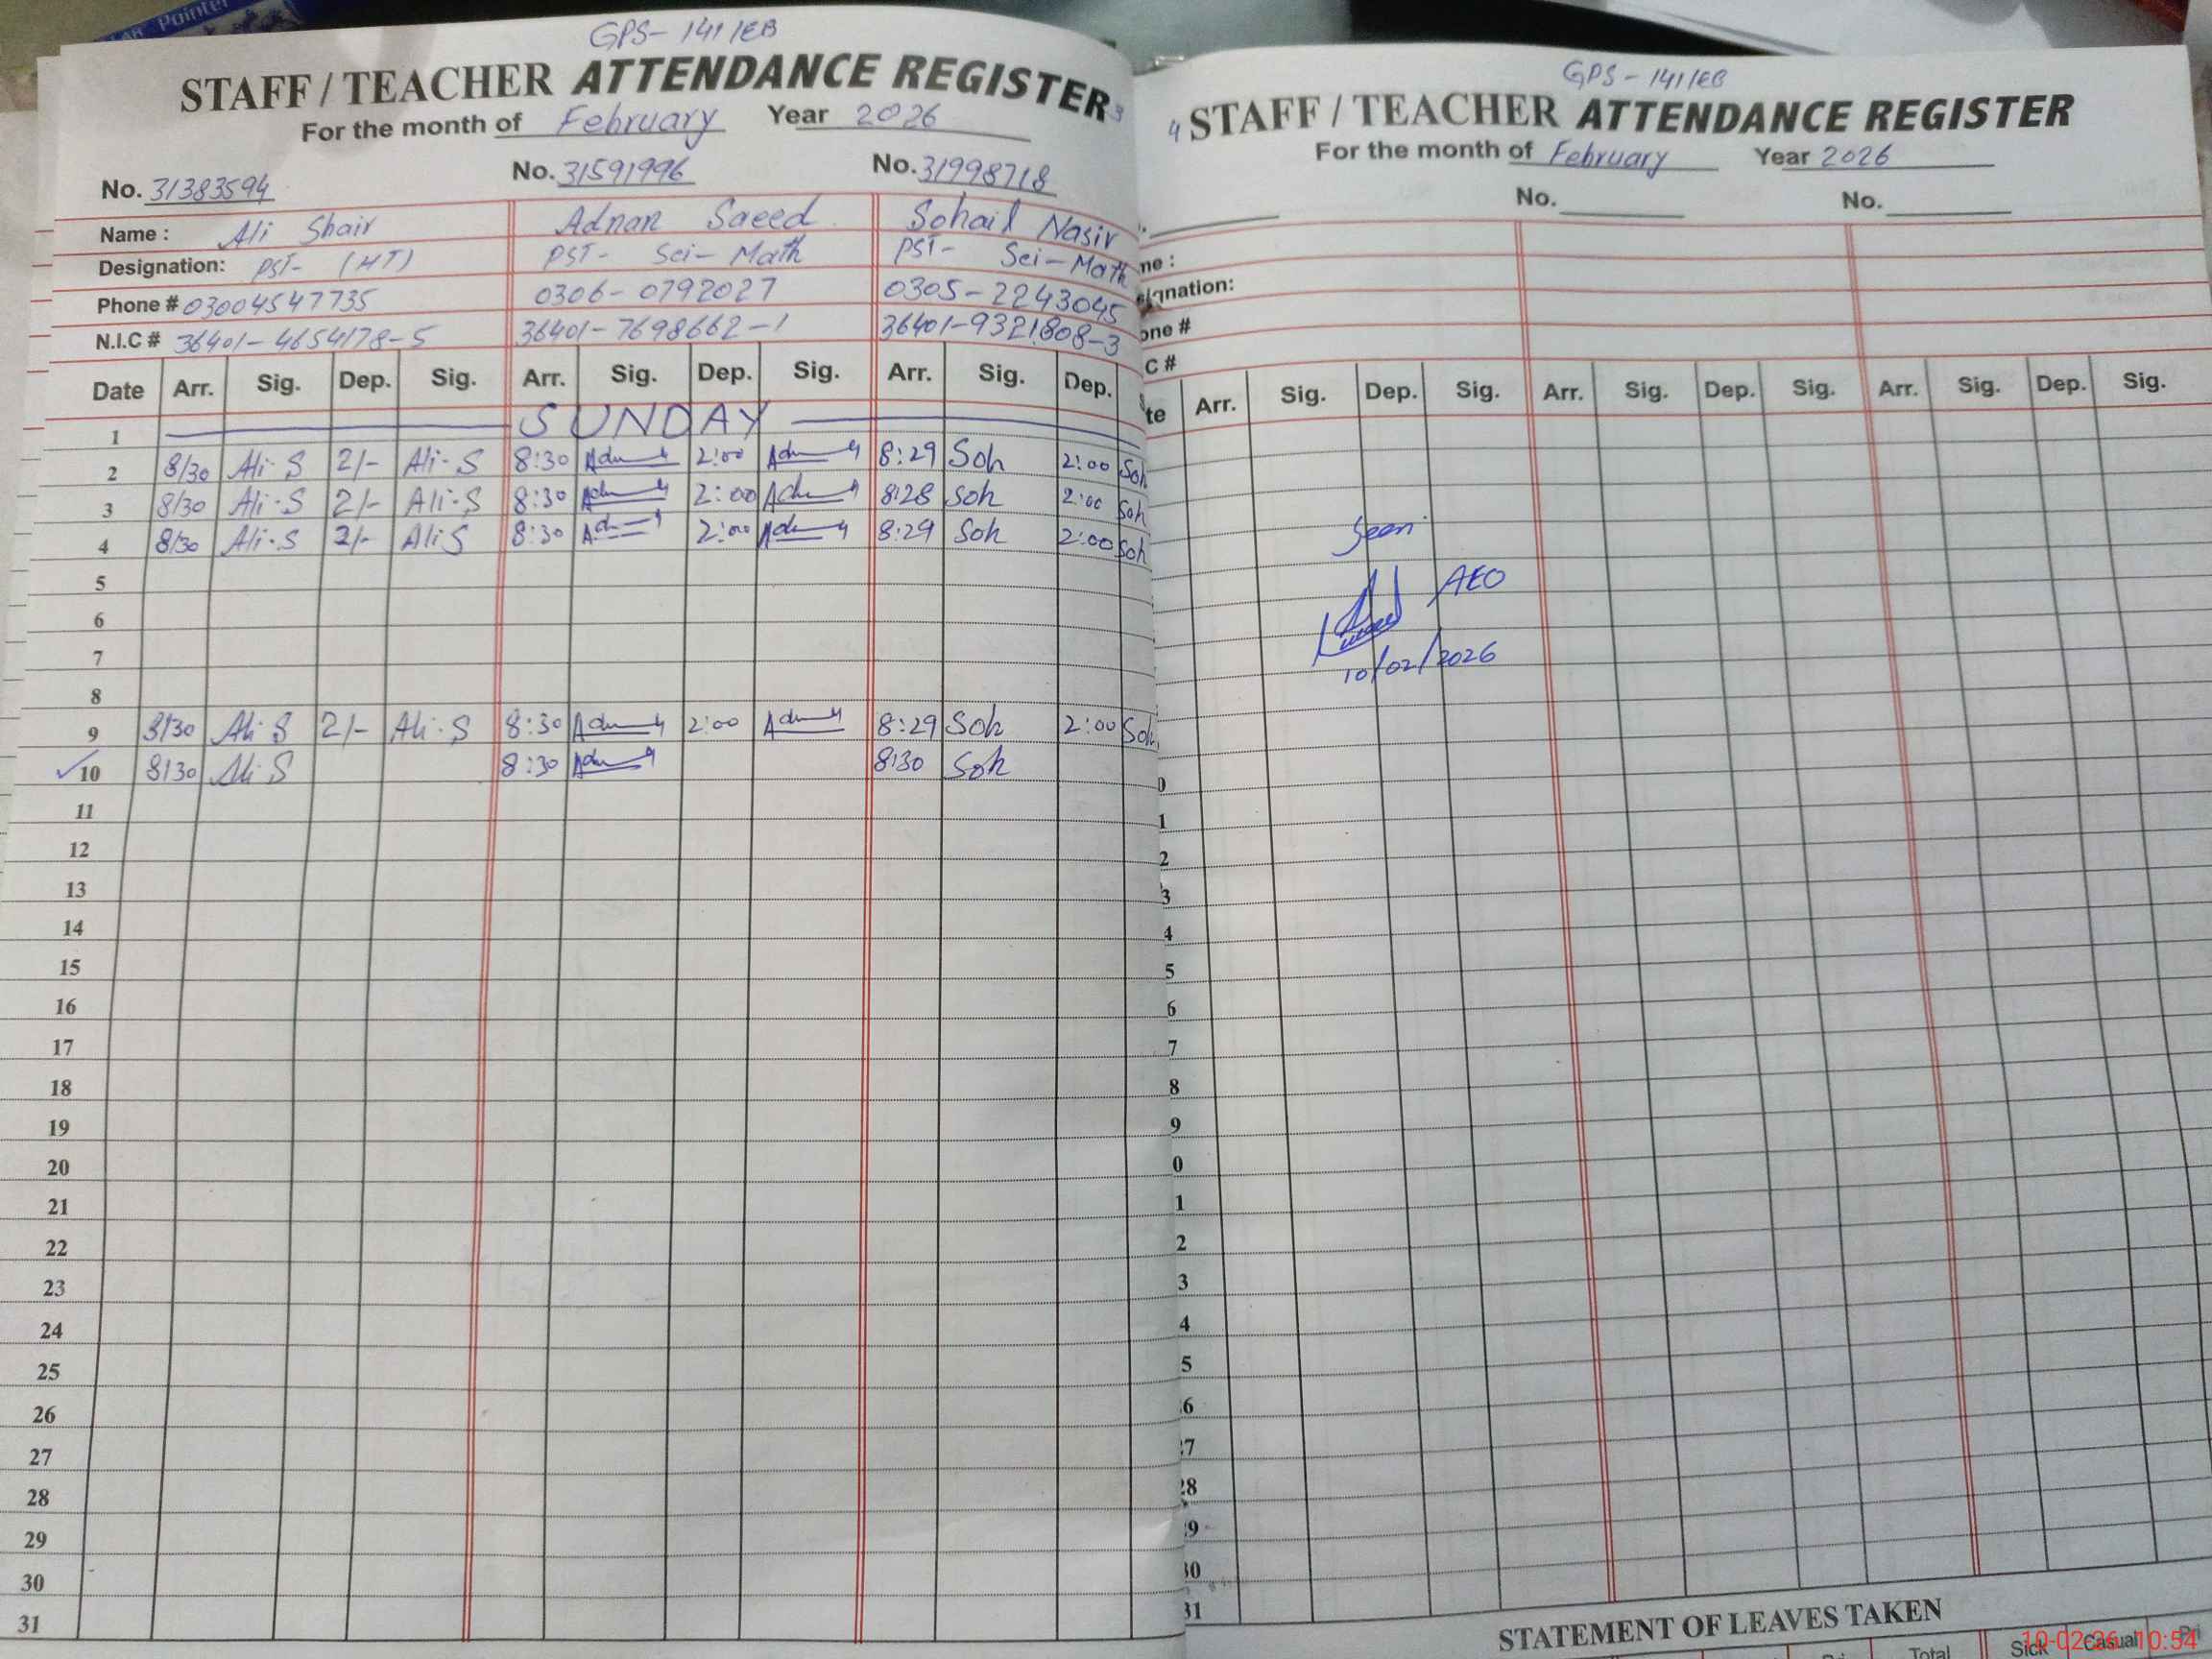 Pointer
GPS- 141/EB
STAFF / TEACHER ATTENDANCE REGISTER
3
For the month of February Year 2026
No. 31383594 No. 31591996 No. 31998718
Name : Ali Shair Adnan Saeed Sohail Nasir
Designation: PST- (HT) PST- Sci- Math PST- Sci- Math
Phone # 03004547735 0306-0792027 0305-2243045
N.I.C # 36401-4654178-5 36401-7698662-1 36401-9321808-3
Date Arr. Sig. Dep. Sig. Arr. Sig. Dep. Sig. Arr. Sig. Dep.
1 SUNDAY
2 8/30 Ali-S 2/- Ali-S 8:30 2:00 8:29 Soh 2:00 Soh
3 8/30 Ali-S 2/- Ali-S 8:30 2:00 8:28 Soh 2:00 Soh
4 8/30 Ali-S 2/- Ali S 8:30 2:00 8:29 Soh 2:00 Soh
5
6
7
8
9 8/30 Ali-S 2/- Ali-S 8:30 2:00 8:29 Soh 2:00 Soh
10 8/30 Ali S 8:30 8:30 Soh
11
12
13
14
15
16
17
18
19
20
21
22
23
24
25
26
27
28
29
30
31
GPS- 141/EB
4
STAFF / TEACHER ATTENDANCE REGISTER
For the month of February Year 2026
No. No.
me :
ignation:
one #
C #
te Arr. Sig. Dep. Sig. Arr. Sig. Dep. Sig. Arr. Sig. Dep. Sig.
Seen
AEO
10/02/2026
0
1
2
3
4
5
6
7
8
9
0
1
2
3
4
5
6
27
28
29
30
31
STATEMENT OF LEAVES TAKEN
Total Sick Casual Pri
10-02-26 10:54